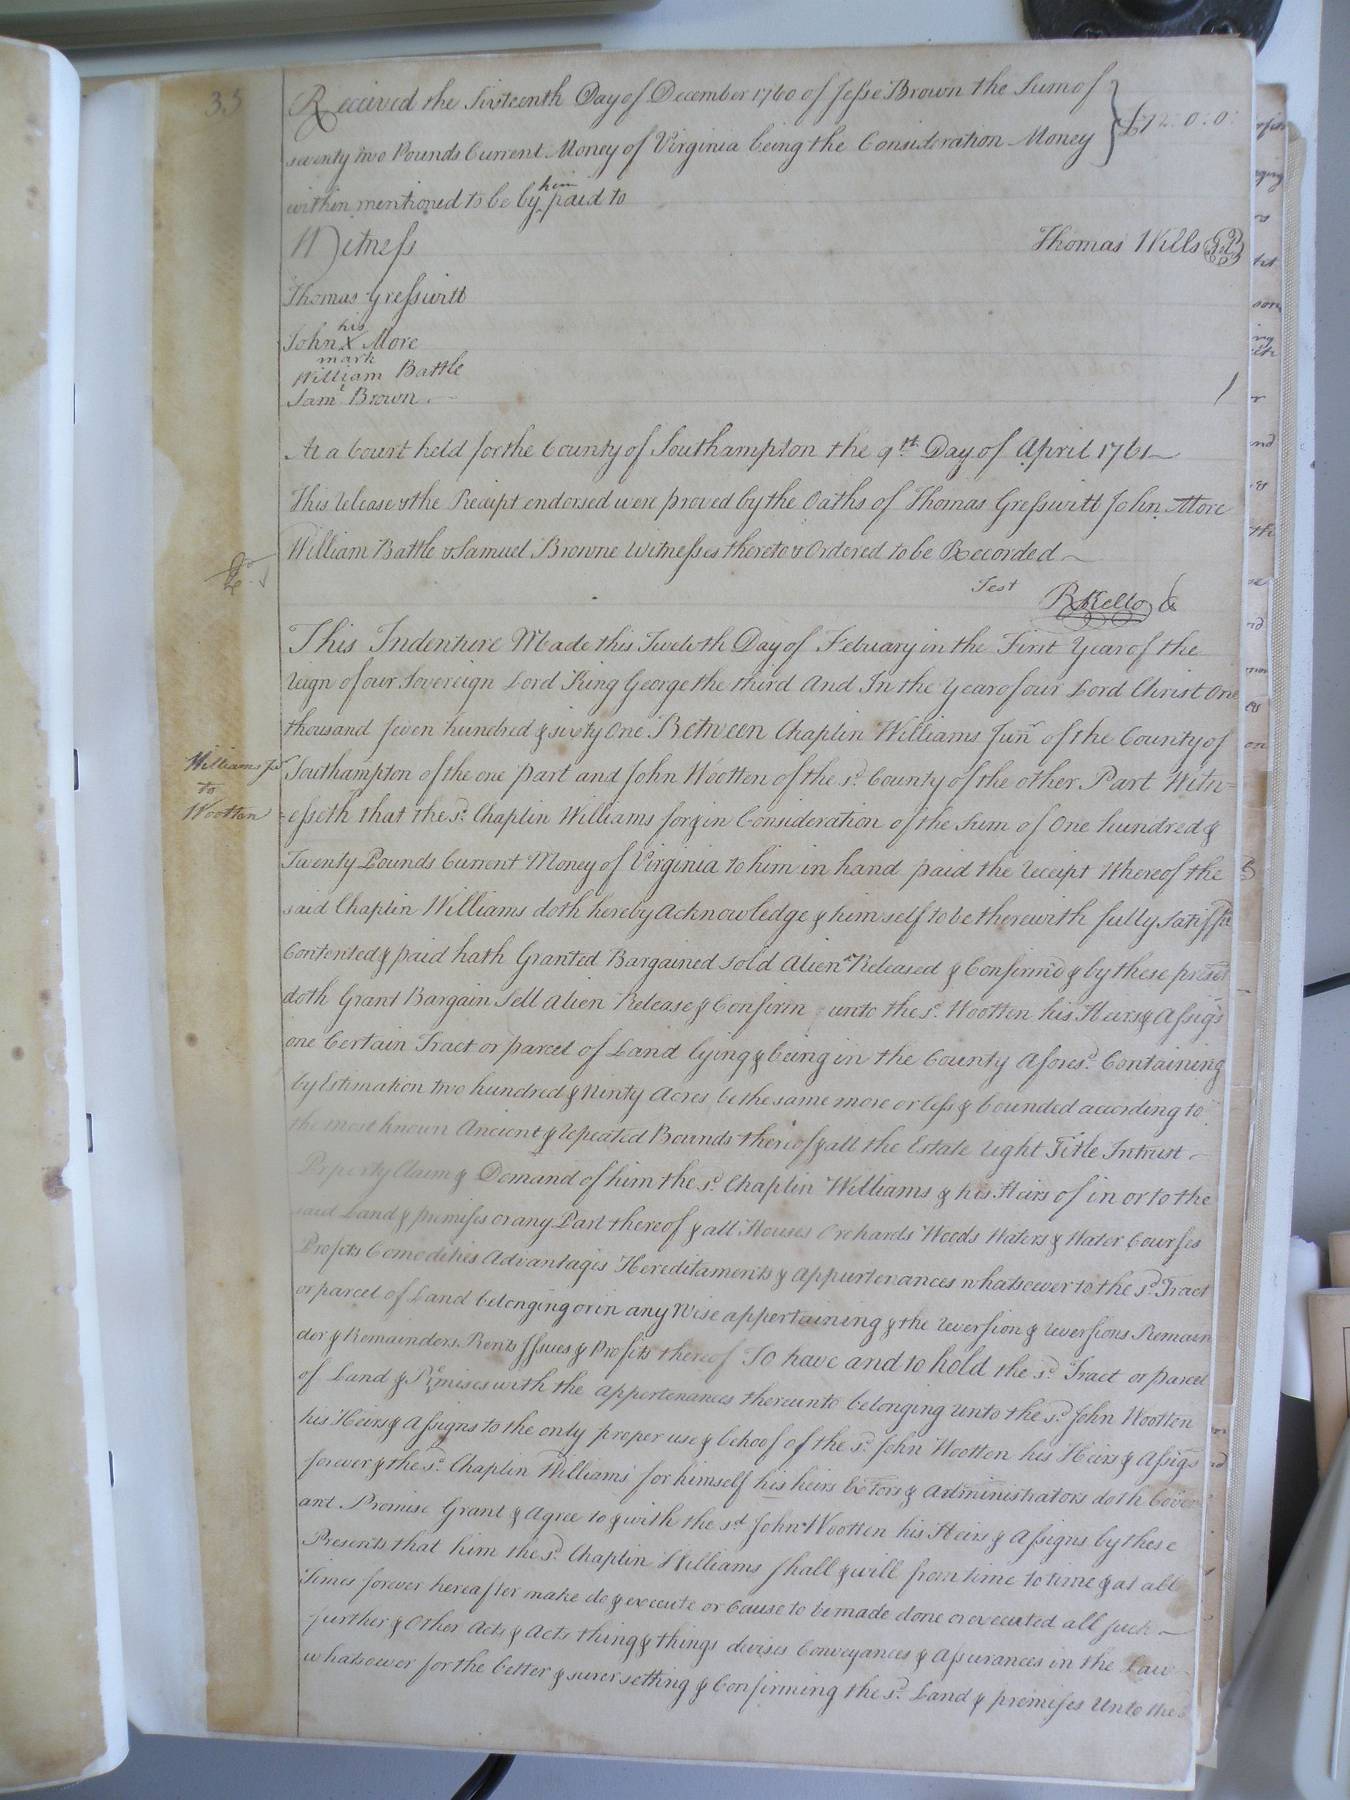 35
Received the Sixteenth Day of December 1760 of Jesse Brown the Sum of
seventy two Pounds Current Money of Virginia being the Consideration Money } £72..0..0.
within mentioned to be by him paid to
Witness Thomas Wills
Thomas Gresswitt
John his X mark More
William Battle
Saml Brown
At a Court held for the County of Southampton the 9th Day of April 1761
This Release & the Receipt endorsed were proved by the Oaths of Thomas Gresswitt John More
William Battle & Samuel Browne Witnesses thereto & Ordered to be Recorded
Test RKello
This Indenture Made this Twelvth Day of Febuary in the First Year of the
Reign of our Sovereign Lord King George the third And In the Year of our Lord Christ One
thousand seven hundred & sixty One Between Chaplin Williams Junr of the County of
Williams Jr
to
Wootten
Southampton of the one Part and John Wootten of the sd. County of the other Part Witn=
=esseth that the sd. Chaplin Williams for & in Consideration of the Sum of One hundred &
Twenty Pounds Current Money of Virginia to him in hand paid the Receipt Whereof the
said Chaplin Williams doth hereby Acknowledge & himself to be therewith fully
Contented & paid hath Granted Bargained Sold Aliend Released & Confirm'd & by these
doth Grant Bargain Sell Alien Release & Confirm unto the sd. Wootten his Heirs & Assigs
one Certain Tract or parcel of Land lying & being in the County Aforesd. Containing
by Estimation two hundred & Ninty Acres be the same more or less & bounded according to
the most known Ancient & Repeated Bounds thereof & all the Estate Right Title Intrust
Property Claim & Demand of him the sd. Chaplin Williams & his Heirs of in or to the
said Land & premises or any Part thereof & all Houses Orchards Woods Waters & Water Courses
Profits Comodities Advantages Hereditaments & Appurtenances whatsoever to the sd. Tract
or parcel of Land belonging or in any Wise appertaining & the Reversion & Reversions Remain
der & Remainders Rents Issues & Profits thereof To have and to hold the sd. Tract or parcel
of Land & Premises with the appertenances thereunto belonging unto the sd. John Wootten
his Heirs & Assigns to the only proper use & behoof of the sd. John Wootten his Heirs & Assigs
forever & the sd. Chaplin Williams for himself his heirs Exetors & Administrators doth Coven
ant Promise Grant & Agree to & with the sd John Wootten his Heirs & Assigns by these
Presents that him the sd. Chaplin Williams shall & will from time to time & at all
Times forever hereafter make do & execute or Cause to be made done or executed all such
further & Other Acts & Acts thing & things devises Conveyances & Assurances in the Law
whatsoever for the better & surer setting & Confirming the sd. Land & premises Unto the